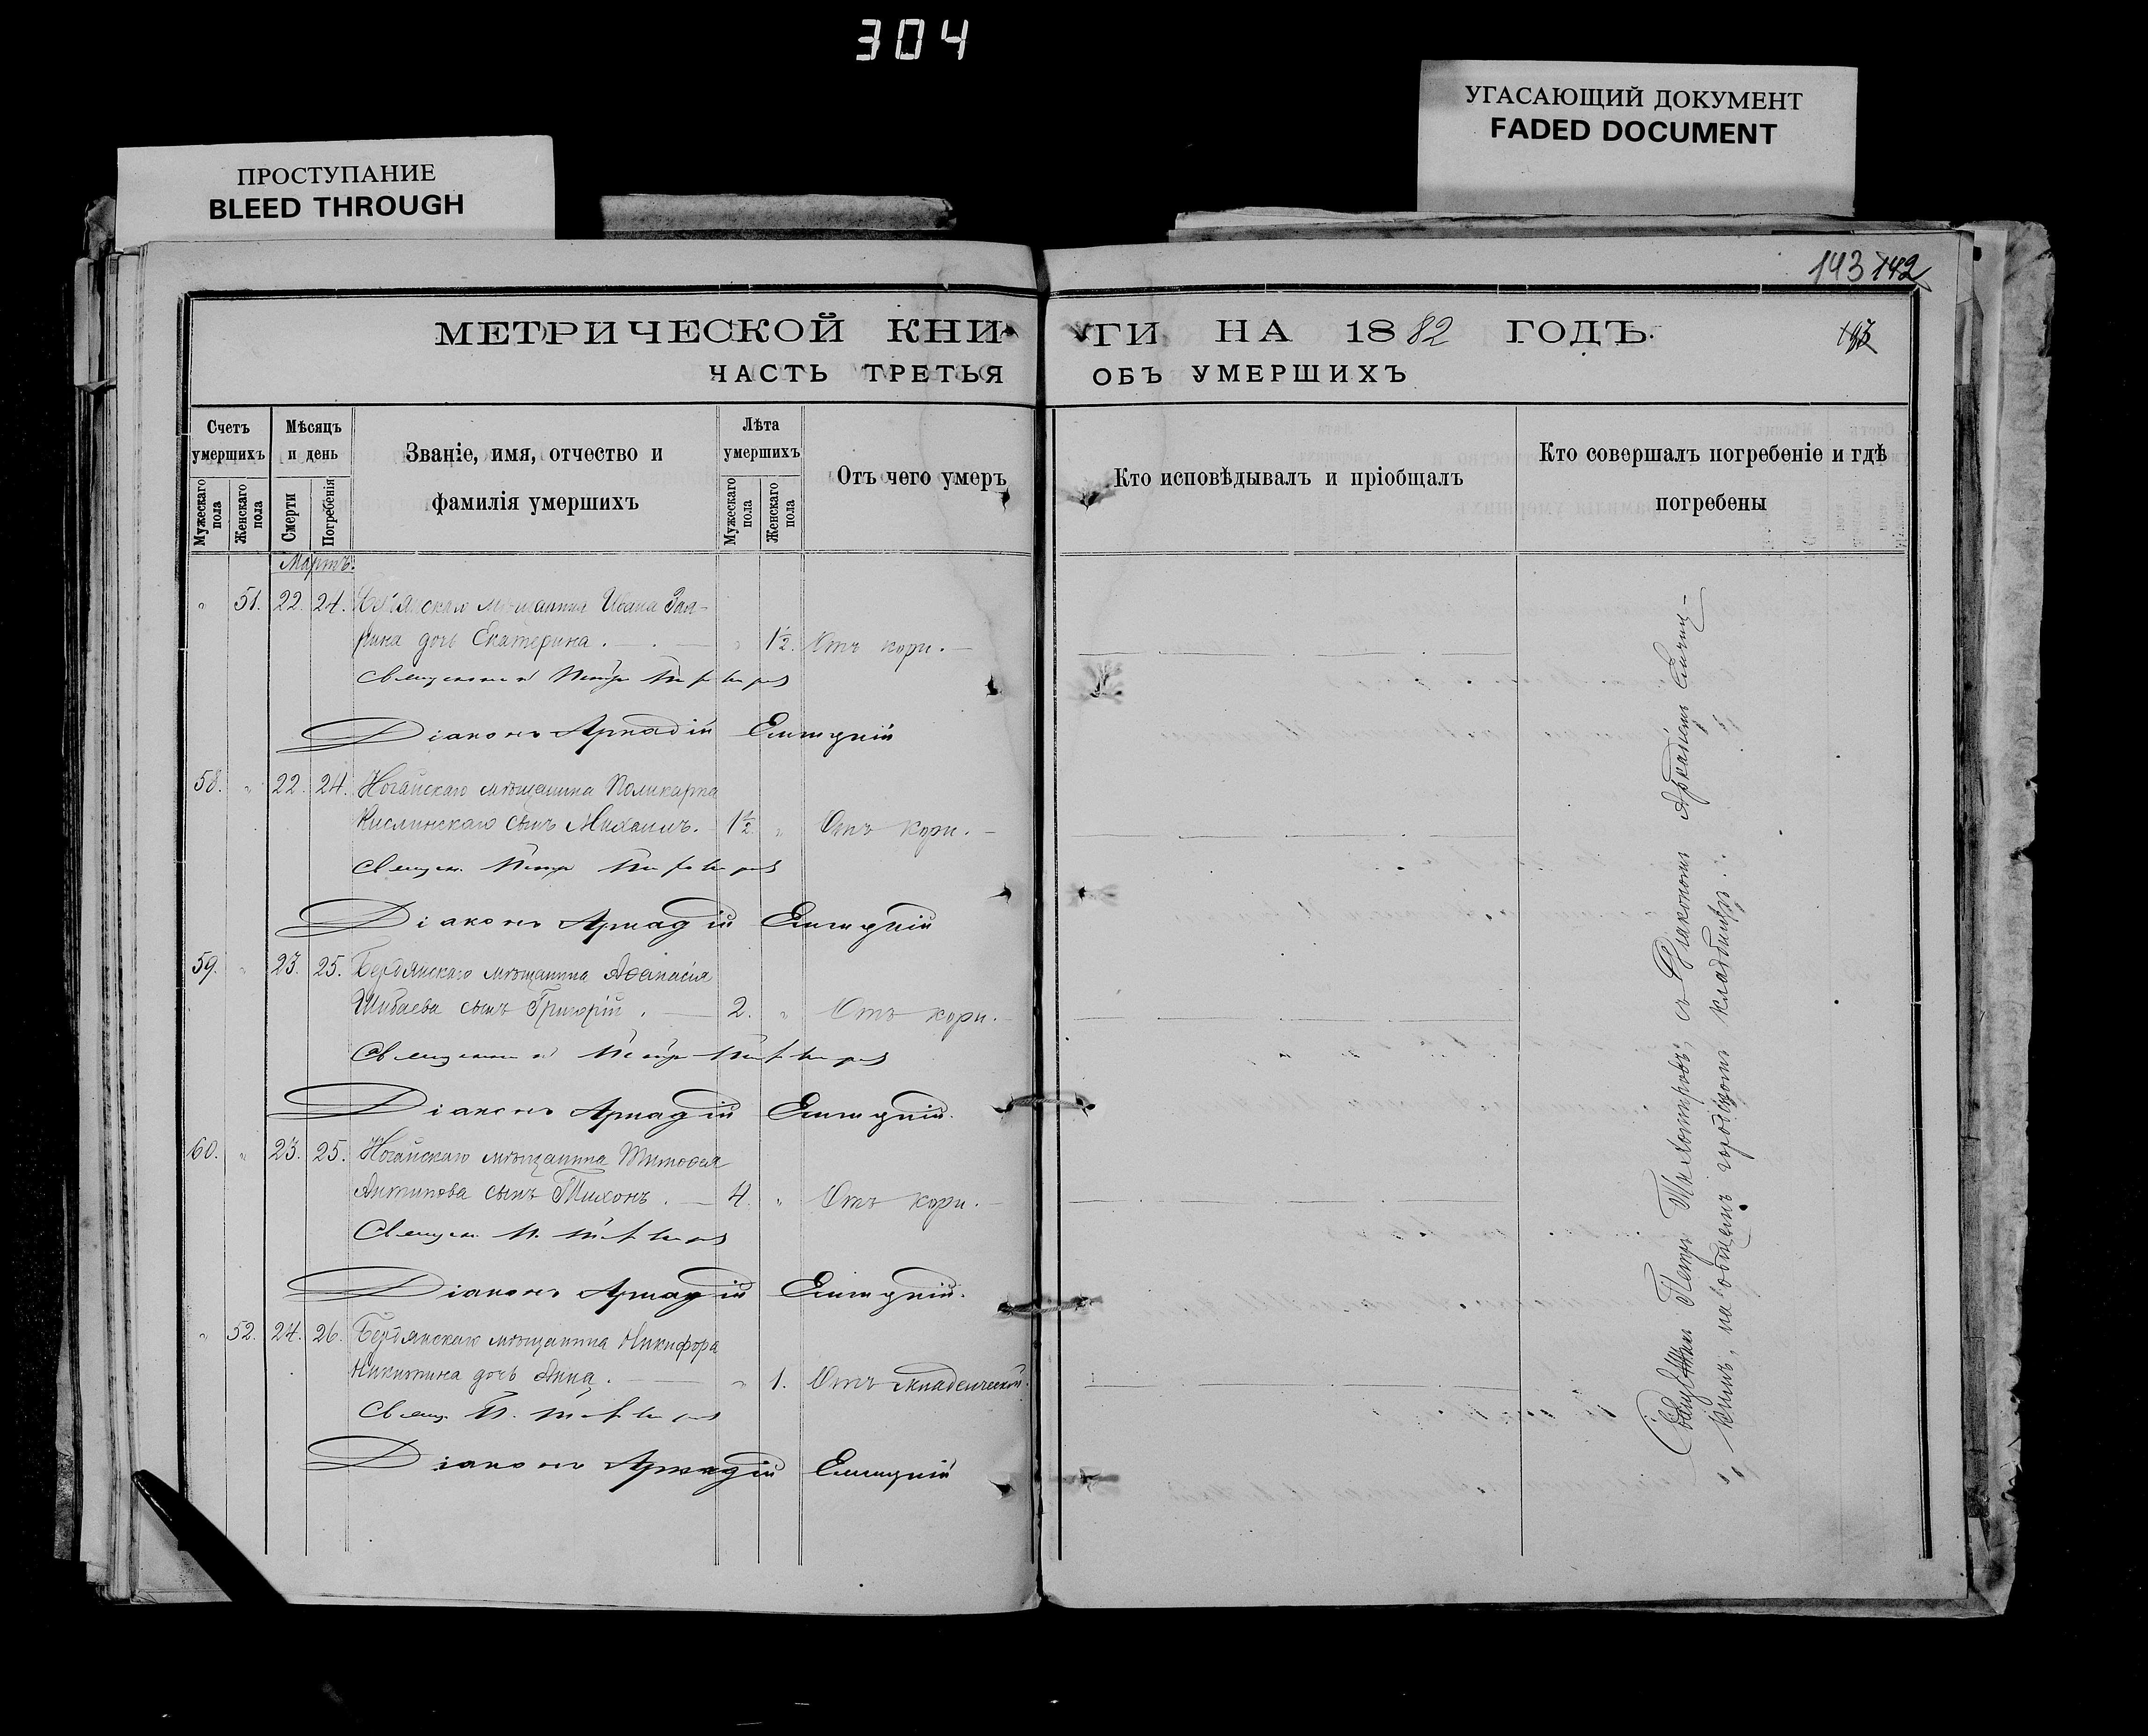 304
УГАСАЮЩИЙ ДОКУМЕНТ
FADED DOCUMENT
ПРОСТУПАНИЕ
BLEED THROUGH
143 142
МЕТРИЧЕСКОЙ КНИГИ НА 1882 ГОДЪ.
ЧАСТЬ ТРЕТЬЯ ОБЪ УМЕРШИХЪ
Счетъ умершихъ
Мужескаго пола
Женскаго пола
Мѣсяцъ и день
Смерти
Погребенія
Званіе, имя, отчество и
фамилія умершихъ
Лѣта умершихъ
Мужескаго пола
Женскаго пола
Отъ чего умеръ
Кто исповѣдывалъ и пріобщалъ
Кто совершалъ погребеніе и гдѣ
погребены
Мартъ.
" 51. 22. 24. мѣщанина Ивана
дочь Екатерина. " 1½. Отъ кори.
Священникъ Петръ
Діаконъ Аркадій
58. " 22. 24. Ногайскаго мѣщанина Поликарпа
Кислинскаго сынъ Михаилъ. 1½ " Отъ кори.
Священ. Петръ
Діаконъ Аркадій
59. " 23. 25. Бердянскаго мѣщанина Аѳанасія
Шибаева сынъ Григорій. 2. " Отъ кори.
Священникъ Петръ
Діаконъ Аркадій
60. " 23. 25. Ногайскаго мѣщанина Тимоѳея
Антипова сынъ Тихонъ. 4. " Отъ кори.
Священ. П.
Діаконъ Аркадій
" 52. 24. 26. Бердянскаго мѣщанина Никифора
Никитина дочь Анна. " 1. Отъ младенческой.
Свящ. П.
Діаконъ Аркадій
Петръ съ Діакономъ Аркадіемъ
на общемъ городскомъ кладбищѣ.